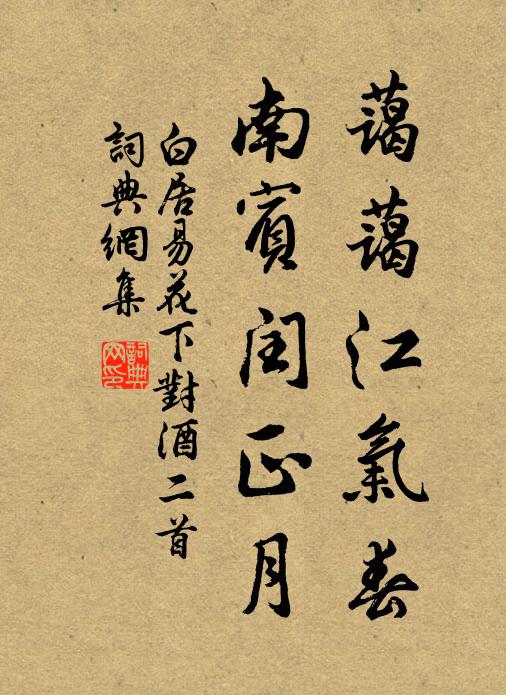 藹藹江氣春
南賓閏正月
白居易花下對酒二首
詞典網集
詞典
网印